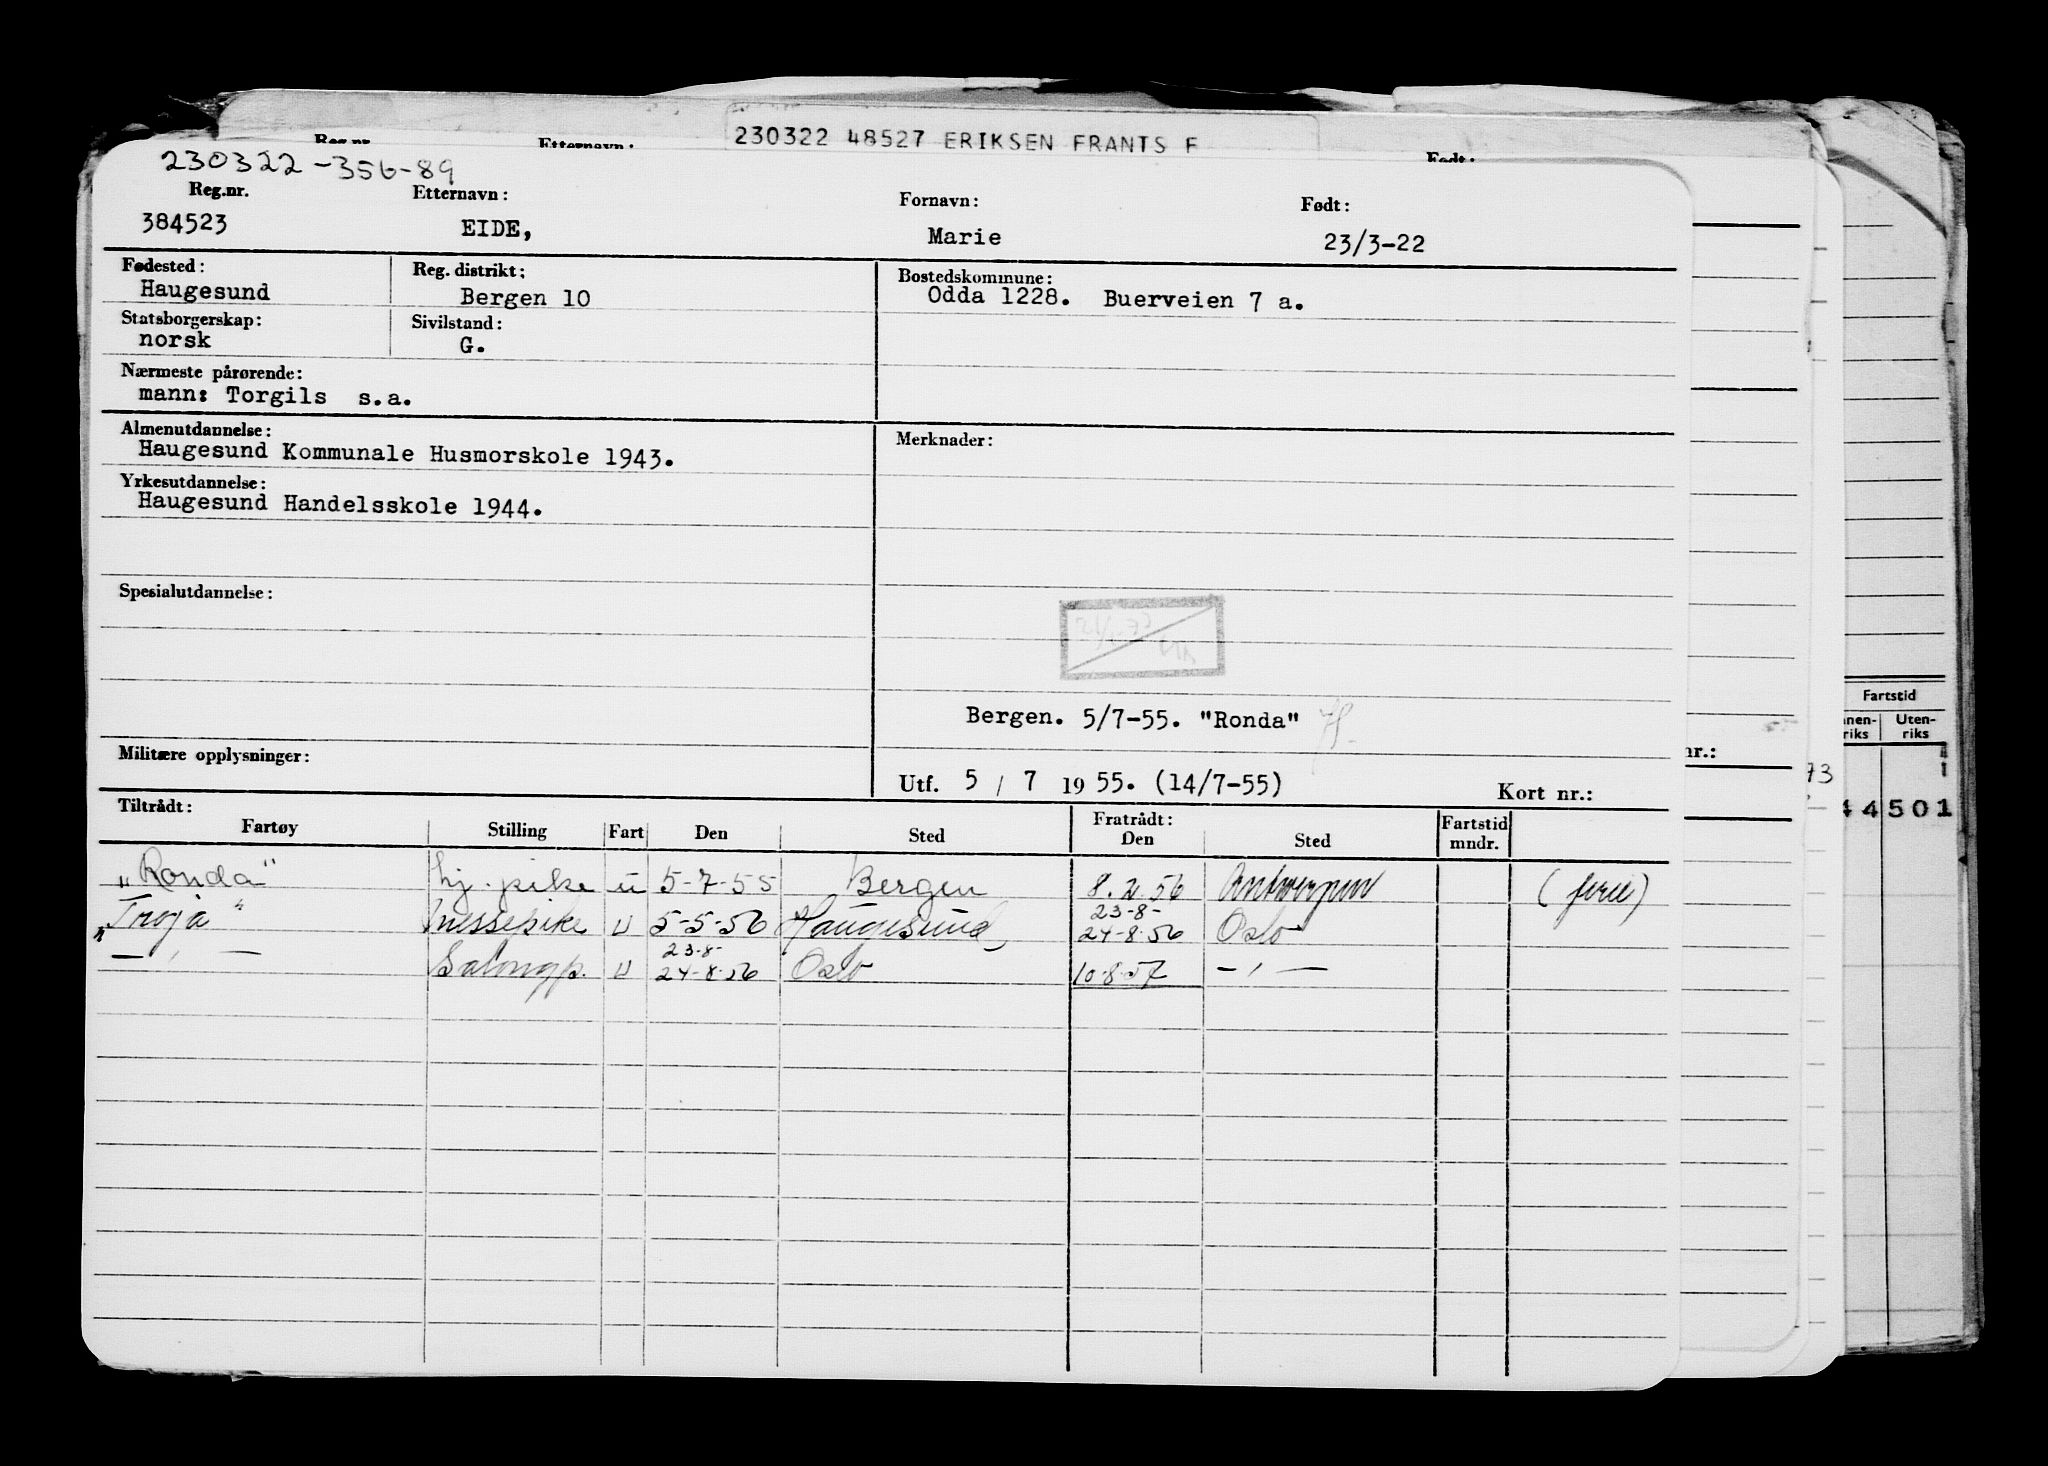 Reg.nr. Etternavn: 230322 48527 ERIKSEN FRANTS F Født:
230322-356-89
Reg.nr. Etternavn: Fornavn: Født:
384523 EIDE, Marie 23/3-22
Fødested: Reg. distrikt: Bostedskommune:
Haugesund Bergen 10 Odda 1228. Buerveien 7 a.
Statsborgerskap: Sivilstand:
norsk G.
Nærmeste pårørende:
mann: Torgils s.a.
Almenutdannelse: Merknader:
Haugesund Kommunale Husmorskole 1943.
Yrkesutdannelse:
Haugesund Handelsskole 1944.
Spesialutdannelse:
Bergen. 5/7-55. "Ronda"
Militære opplysninger:
Utf. 5 / 7 1955. (14/7-55) Kort nr.:
Tiltrådt: Fratrådt: Fartstid
Fartøy Stilling Fart Den Sted Den Sted mndr.
"Ronda" hj. pike u 5-7-55 Bergen 8.2.56 Antwerpen (ferie)
23-8-
"Troja" messepike u 5-5-56 Haugesund 24-8-56 Oslo
23-8-
—"— Salongp. u 24-8-56 Oslo 10-8-57 —"—
Fartstid
nnen- Uten-
riks riks
nr.:
73
44501